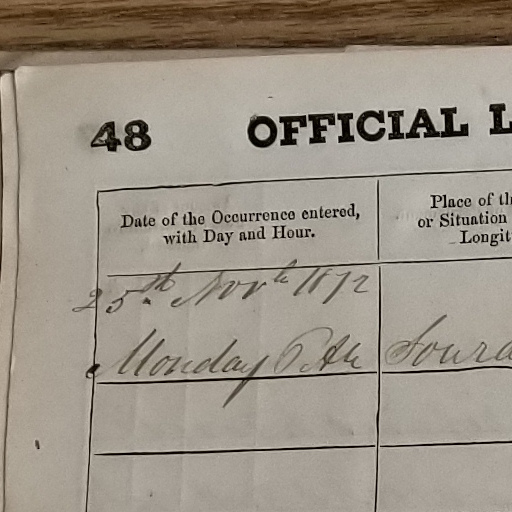 48 OFFICIAL L
Date of the Occurrence entered,
with Day and Hour.
Place of th
or Situation
Longit
25th Novr 1872
Monday